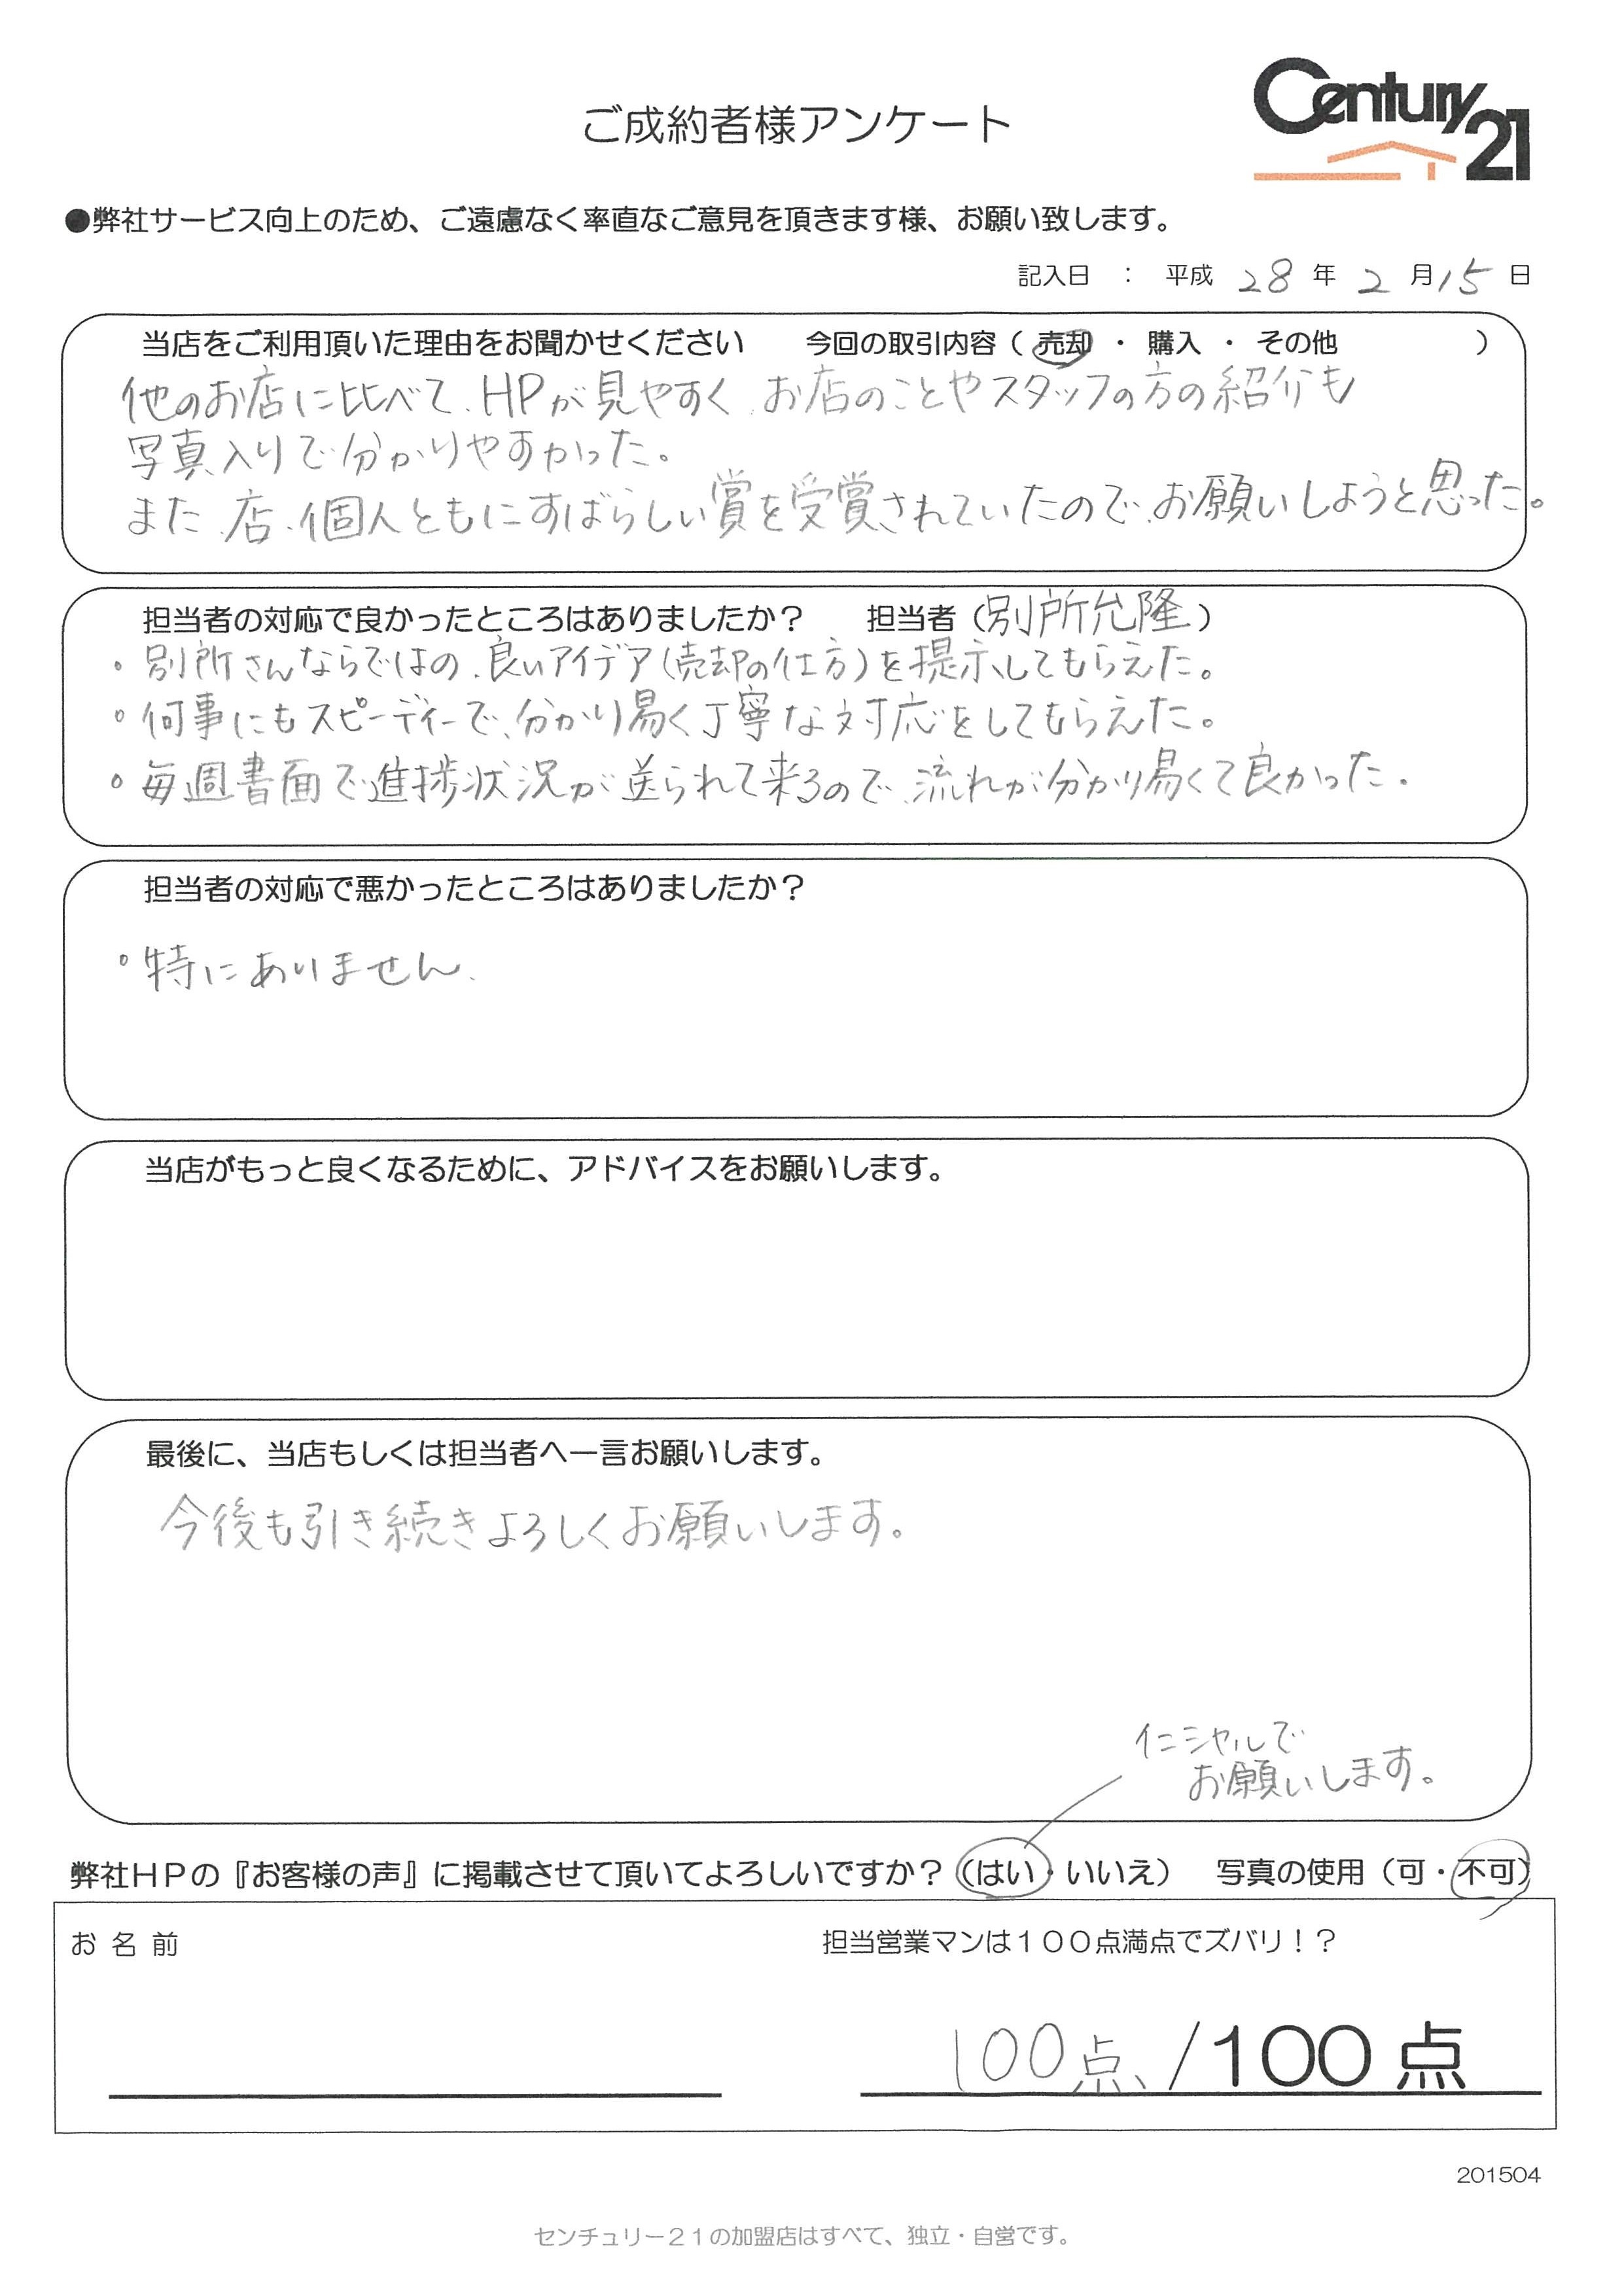 ご成約者様アンケート
Century 21
●弊社サービス向上のため、ご遠慮なく率直なご意見を頂きます様、お願い致します。
記入日 : 平成 28 年 2 月 15 日
当店をご利用頂いた理由をお聞かせください 今回の取引内容( 売却 ・ 購入 ・ その他 )
他のお店に比べて、HPが見やすく、お店のことやスタッフの方の紹介も
写真入りで分かりやすかった。
また、店、個人ともにすばらしい賞を受賞されていたので、お願いしようと思った。
担当者の対応で良かったところはありましたか? 担当者(別所允隆)
・別所さんならではの、良いアイデア(売却の仕方)を提示してもらえた。
・何事にもスピーディーで、分かり易く丁寧な対応をしてもらえた。
・毎週書面で進捗状況が送られて来るので、流れが分かり易くて良かった.
担当者の対応で悪かったところはありましたか?
・特にありません.
当店がもっと良くなるために、アドバイスをお願いします。
最後に、当店もしくは担当者へ一言お願いします。
今後も引き続きよろしくお願いします。
イニシャルで
お願いします。
弊社HPの『お客様の声』に掲載させて頂いてよろしいですか?(はい・いいえ) 写真の使用(可・不可)
お名前 担当営業マンは100点満点でズバリ!?
100点、/100点
201504
センチュリー21の加盟店はすべて、独立・自営です。